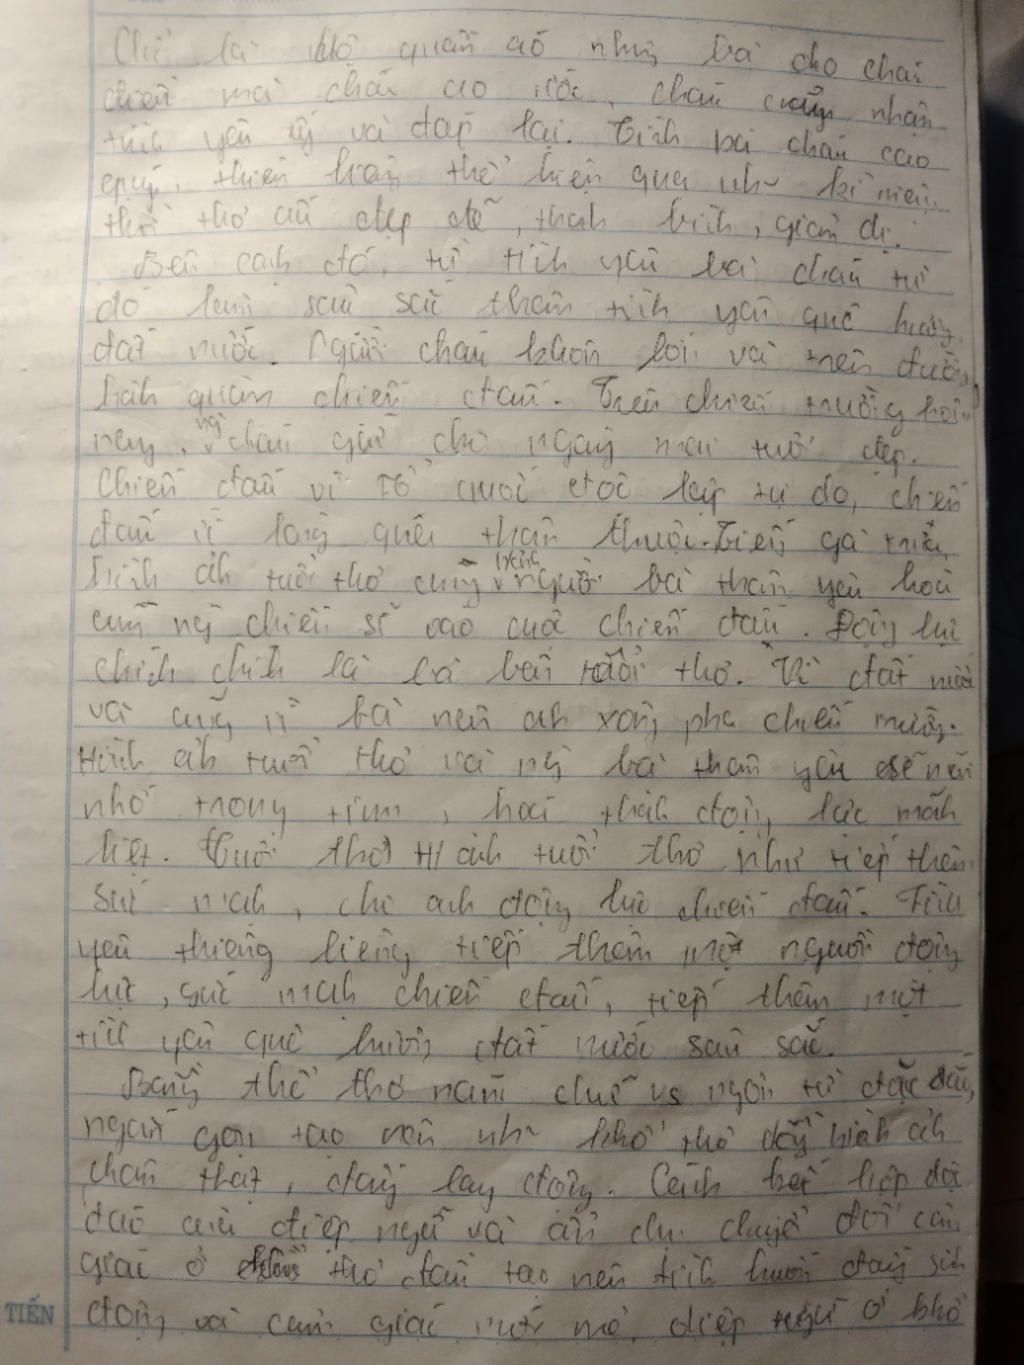 Chỉ là bộ quần áo nhưg bà cho cháu
mà cháu cao , cháu nhận
yêu ấy và đáp lại. Tình bà cháu cao
quý, thiên thể hiện qua nhữ kỉ niệm
thơ cũ đẹp đẽ, thah bìh, giản dị.
Bên cạnh đó, từ tìh yêu bà cháu từ
đó làm sâu sắc thêm tìh yêu quê hươg
đất nước. Người cháu khôn lớn và trên đườg
hàh quân chiến đấu. Trên chiến trườg hôm
nay, ng cháu giữ cho ngày mai tươi đẹp.
Chiến đấu vì Tổ quốc độc lập tự do, chiến
đấu vì làng quê thân thuộc. Tiếng gà
hìh ảh tuổi thơ cùng người bà thân yêu hoà
cùng ng chiến sĩ vào cuộc chiến đấu. Độg lực
chíh là bà bên tuổi thơ. Vì đất nước
và cũg vì bà nên ah xôg pha chiến trườg.
Hìh ảh tuổi thơ và ng bà thân yêu sẽ
nhớ trong tim, hoá thàh độg lực mãh
liệt. Hìh ảh tuổi thơ như tiếp thêm
sức mạh, cho ah độg lực chiến đấu. Tìh
yêu thiêng liêng tiếp thêm một nguồn độg
lực, sức mạh chiến đấu, tiếp thêm một
tìh yêu quê hươg đất nước sâu sắc.
Bằng thể thơ năm chữ vs ngôn từ đặc sắc,
ngắn gọn tạo nên nhữ khổ thơ đầy hìah ảh
chân thật, đầy lay độg. Cách kết hợp độc
đáo giữa điệp ngữ và ẩn dụ chuyển đổi cảm
giác ở thơ đầu tạo nên tìh huốg đầy sih
độg và cảm giác mới mẻ. điệp ngữ ở khổ
TIẾN